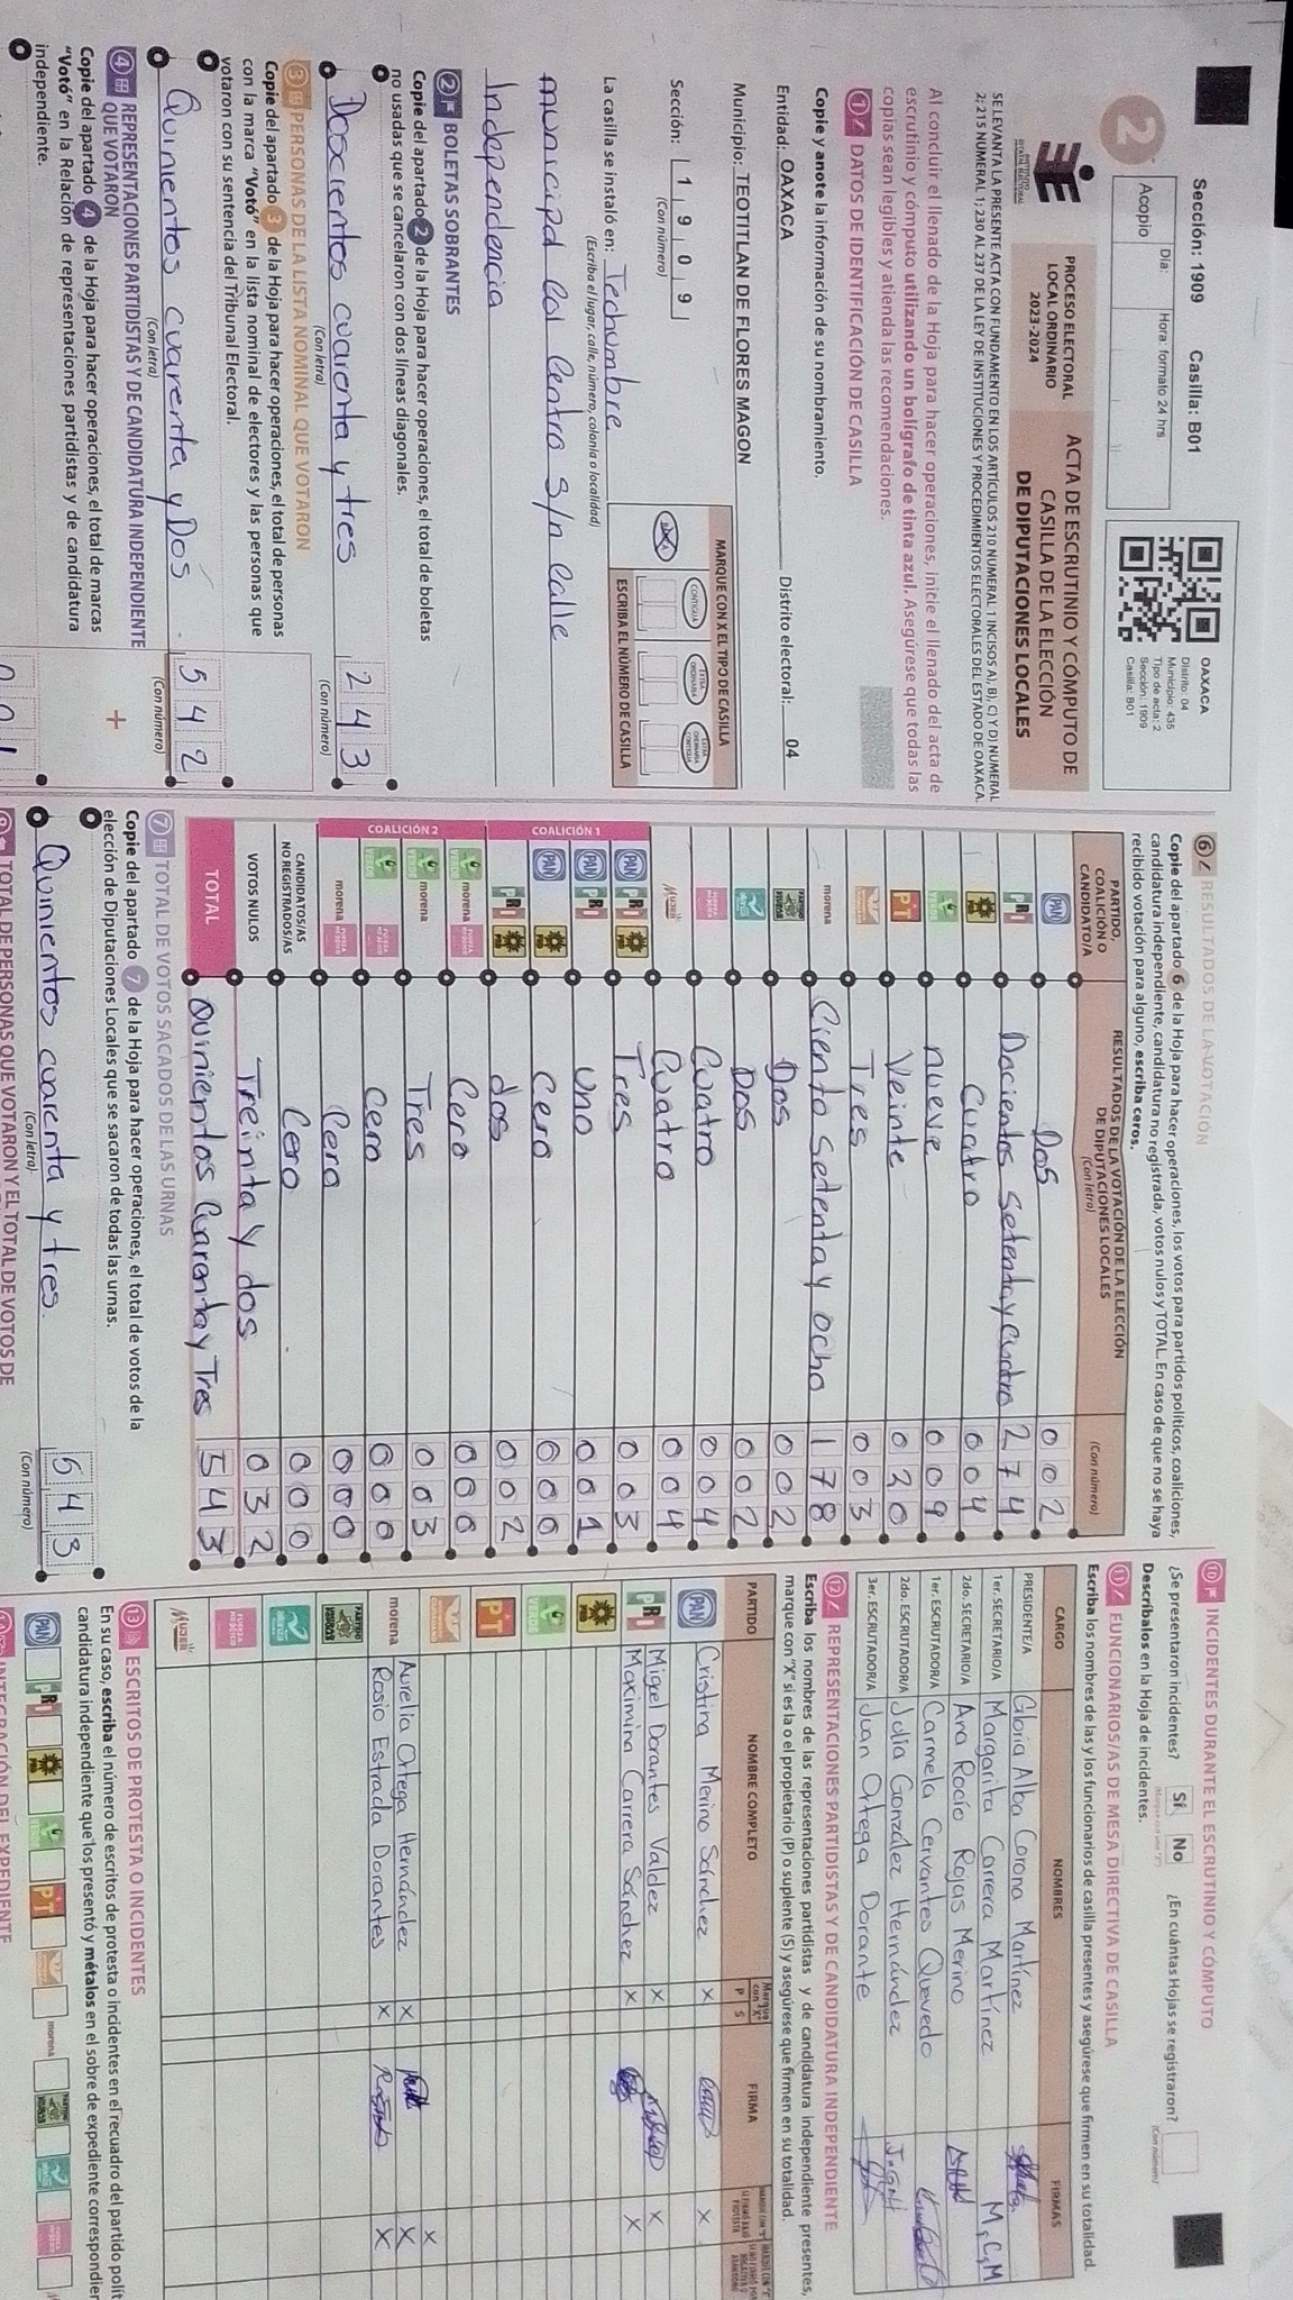 Sección: 1909 Casilla: B01
2
Día: Hora: formato 24 hrs
Acopio
OAXACA
Distrito: 04
Municipio: 435
Tipo de acta: 2
Sección: 1909
Casilla: B01
PROCESO ELECTORAL
LOCAL ORDINARIO
2023-2024
ACTA DE ESCRUTINIO Y CÓMPUTO DE
CASILLA DE LA ELECCIÓN
DE DIPUTACIONES LOCALES
SE LEVANTA LA PRESENTE ACTA CON FUNDAMENTO EN LOS ARTÍCULOS 210 NUMERAL 1 INCISOS A), B), C) Y D) NUMERAL
2; 215 NUMERAL 1; 230 AL 237 DE LA LEY DE INSTITUCIONES Y PROCEDIMIENTOS ELECTORALES DEL ESTADO DE OAXACA.
Al concluir el llenado de la Hoja para hacer operaciones, inicie el llenado del acta de
escrutinio y cómputo utilizando un bolígrafo de tinta azul. Asegúrese que todas las
copias sean legibles y atienda las recomendaciones.
1 DATOS DE IDENTIFICACIÓN DE CASILLA
Copie y anote la información de su nombramiento.
Entidad: OAXACA Distrito electoral: 04
Municipio: TEOTITLAN DE FLORES MAGON
Sección: 1 9 0 9
(Con número)
MARQUE CON X EL TIPO DE CASILLA
CONTIGUA
ESCRIBA EL NÚMERO DE CASILLA
La casilla se instaló en: Techumbre
(Escriba el lugar, calle, número, colonia o localidad)
municipal Col Centro S/n Calle
Independencia
2 BOLETAS SOBRANTES
Copie del apartado 2 de la Hoja para hacer operaciones, el total de boletas
no usadas que se cancelaron con dos líneas diagonales.
Doscientos cuarenta y tres 2 4 3
(Con letra) (Con número)
3 PERSONAS DE LA LISTA NOMINAL QUE VOTARON
Copie del apartado 3 de la Hoja para hacer operaciones, el total de personas
con la marca "Votó" en la lista nominal de electores y las personas que
votaron con su sentencia del Tribunal Electoral.
Quinientos cuarenta y Dos 5 4 2
(Con letra) (Con número)
4 REPRESENTACIONES PARTIDISTAS Y DE CANDIDATURA INDEPENDIENTE
QUE VOTARON
+
Copie del apartado 4 de la Hoja para hacer operaciones, el total de marcas
"Votó" en la Relación de representaciones partidistas y de candidatura
independiente.
0 0 1
6 RESULTADOS DE LA VOTACIÓN
Copie del apartado 6 de la Hoja para hacer operaciones, los votos para partidos políticos, coaliciones,
candidatura independiente, candidatura no registrada, votos nulos y TOTAL. En caso de que no se haya
recibido votación para alguno, escriba ceros.
PARTIDO,
COALICIÓN O
CANDIDATO/A
RESULTADOS DE LA VOTACIÓN DE LA ELECCIÓN
DE DIPUTACIONES LOCALES
(Con letra)
(Con número)
PAN Dos 0 0 2
PRI Docientos Setenta y cuatro 2 7 4
PRD Cuatro 0 0 4
VERDE nueve 0 0 9
PT Veinte 0 2 0
Tres 0 0 3
morena Ciento Setenta y ocho 1 7 8
Dos 0 0 2
Dos 0 0 2
Cuatro 0 0 4
MUJER Cuatro 0 0 4
COALICIÓN 1
PAN PRI PRD Tres 0 0 3
PAN PRI Uno 0 0 1
PAN PRD Cero 0 0 0
PRI PRD dos 0 0 2
COALICIÓN 2
VERDE morena Cero 0 0 0
VERDE morena Tres 0 0 3
VERDE Cero 0 0 0
morena Cero 0 0 0
CANDIDATOS/AS
NO REGISTRADOS/AS Cero 0 0 0
VOTOS NULOS Treinta y dos 0 3 2
TOTAL Quinientos Cuarenta y Tres 5 4 3
7 TOTAL DE VOTOS SACADOS DE LAS URNAS
Copie del apartado 7 de la Hoja para hacer operaciones, el total de votos de la
elección de Diputaciones Locales que se sacaron de todas las urnas.
Quinientos cuarenta y tres. 5 4 3
(Con letra) (Con número)
TOTAL DE PERSONAS QUE VOTARON Y EL TOTAL DE VOTOS DE
10 INCIDENTES DURANTE EL ESCRUTINIO Y CÓMPUTO
¿Se presentaron incidentes? Sí No ¿En cuántas Hojas se registraron?
(Con número)
Descríbalos en la Hoja de incidentes.
11 FUNCIONARIOS/AS DE MESA DIRECTIVA DE CASILLA
Escriba los nombres de las y los funcionarios de casilla presentes y asegúrese que firmen en su totalidad.
CARGO NOMBRES FIRMAS
PRESIDENTE/A Gloria Alba Corona Martínez
1er. SECRETARIO/A Margarita Carrera Martínez M,C,M
2do. SECRETARIO/A Ana Rocío Rojas Merino
1er. ESCRUTADOR/A Carmela Cervantes Quevedo
2do. ESCRUTADOR/A Julia González Hernández
3er. ESCRUTADOR/A Juan Ortega Dorante
12 REPRESENTACIONES PARTIDISTAS Y DE CANDIDATURA INDEPENDIENTE
Escriba los nombres de las representaciones partidistas y de candidatura independiente presentes,
marque con "X" si es la o el propietario (P) o suplente (S) y asegúrese que firmen en su totalidad.
PARTIDO NOMBRE COMPLETO Marque con "X" P S FIRMA
PAN Cristina Merino Sánchez X X
PRI Migel Dorantes Valdez X X
Maximina Carrera Sánchez X X
PRD
VERDE
PT
X
morena Aurelia Ortega Hernández X X
Rosio Estrada Dorantes X X
MUJER
13 ESCRITOS DE PROTESTA O INCIDENTES
En su caso, escriba el número de escritos de protesta o incidentes en el recuadro del partido polít
candidatura independiente que los presentó y métalos en el sobre de expediente correspondien
PAN PRI PRD VERDE PT morena
INTEGRACIÓN DEL EXPEDIENTE